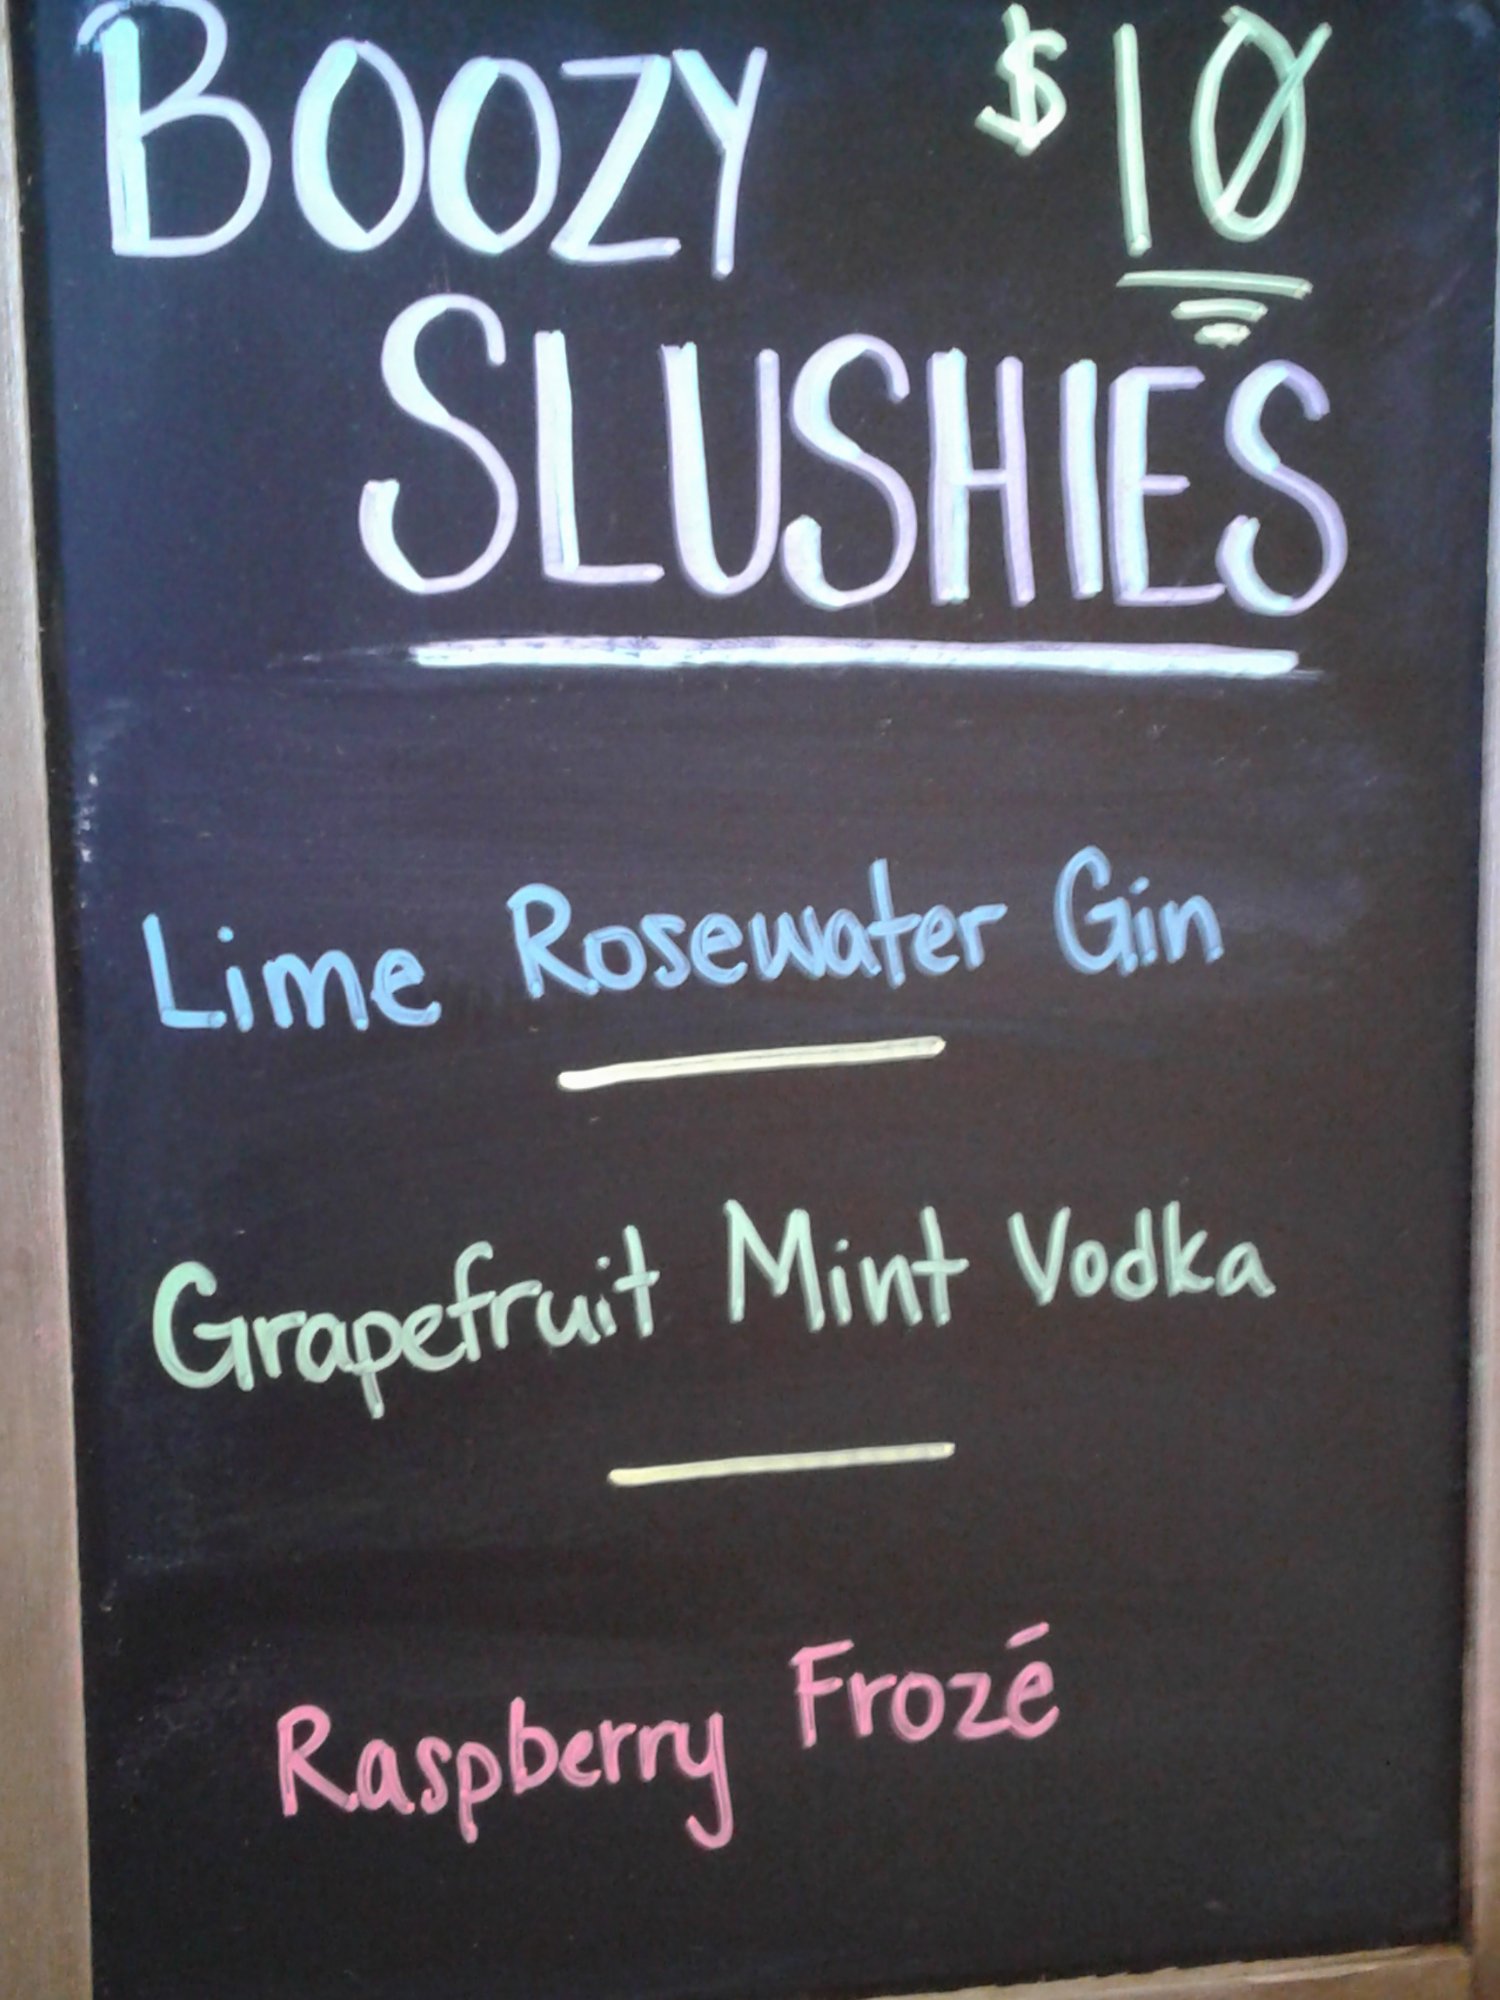 BOOZY $10
SLUSHIES
Lime Rosewater Gin
Grapefruit Mint Vodka
Raspberry Frozé